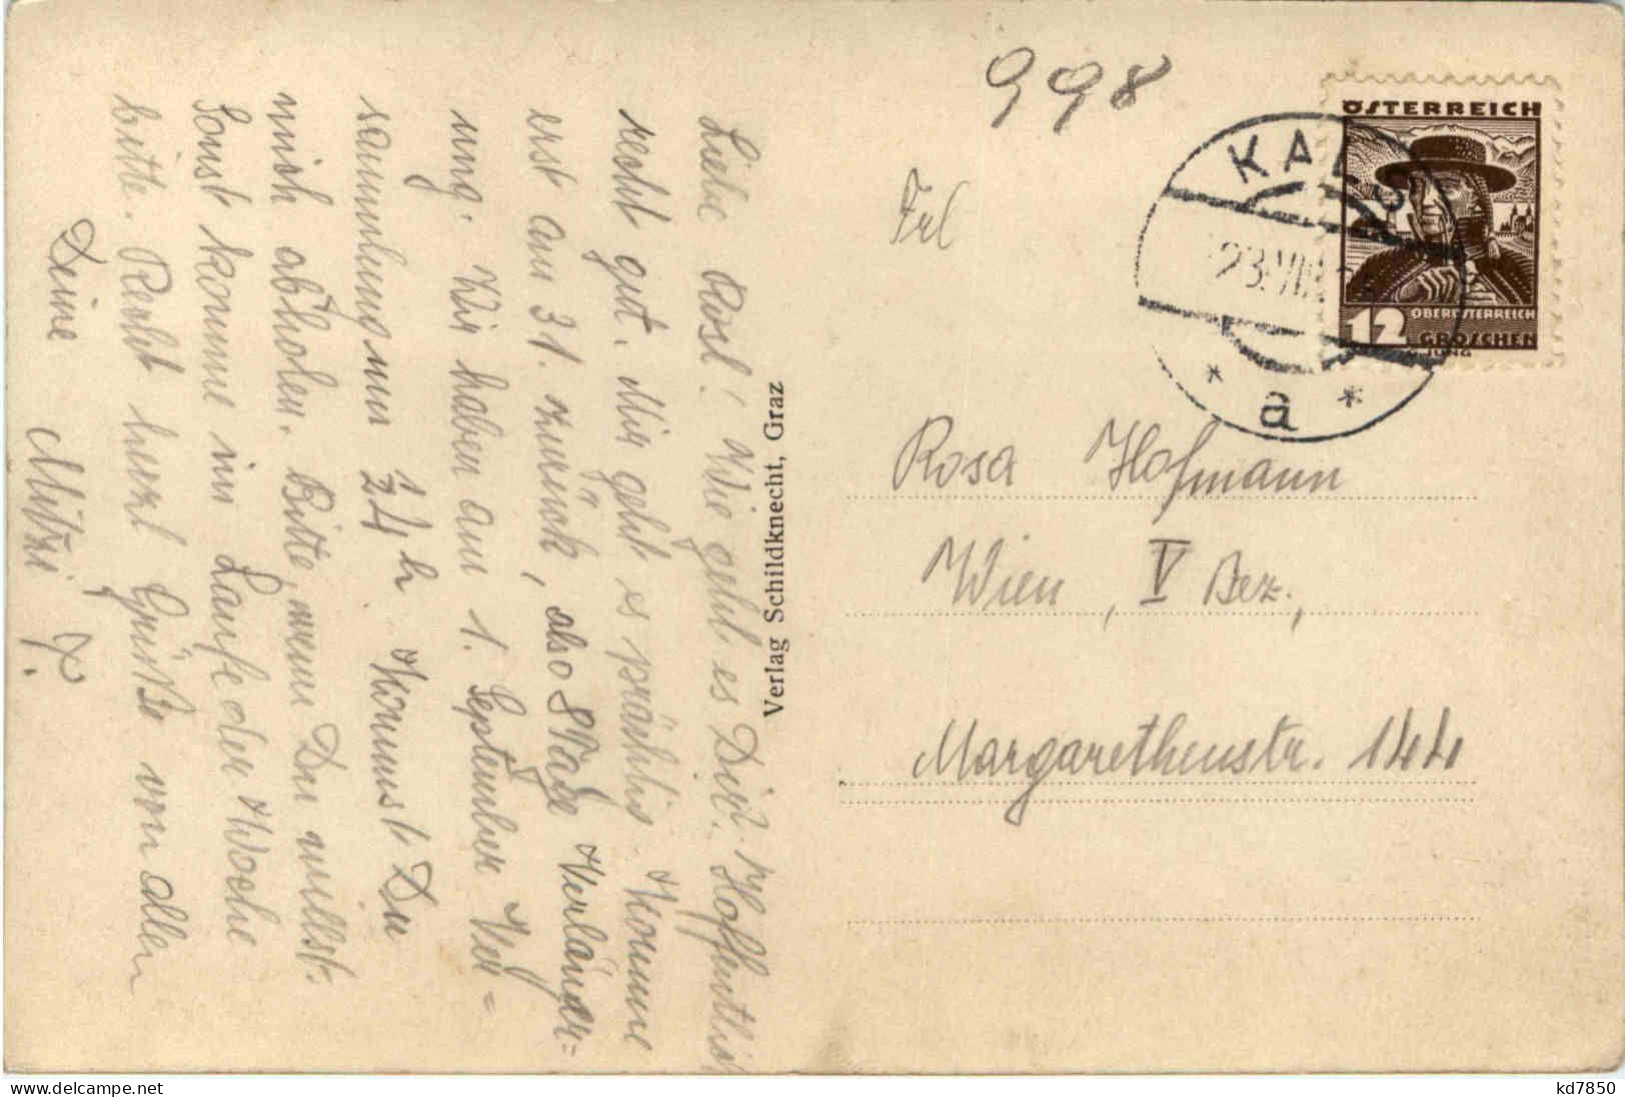 Liebe Rosl! Wie geht es Dir? Hoffentlich
recht gut. Mir geht es prächtig. Komme
erst am 31. zurück, also 8 Tage Verlänger=
ung. Wir haben am 1. September Ver=
sammlung um ½4 h. Kommst Du
mich abholen. Bitte, wenn Du willst.
Sonst komme im Laufe der Woche
bitte. Recht herzl Grüße von allen
Deine Mitzi
Verlag Schildknecht, Graz
998
Frl
Rosa Hofmann
Wien, V Bez.,
Margarethenstr. 144
ÖSTERREICH
OBERÖSTERREICH
12 GROSCHEN
JUNG
KALS
23. VIII
* a *
kd7850